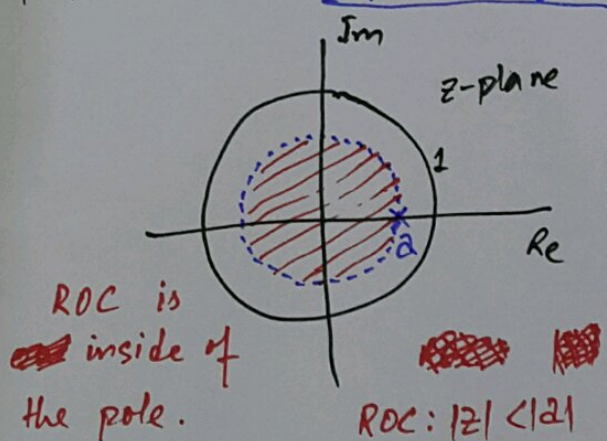 Im
z-plane
1
a
Re
ROC is
inside of
the pole.
ROC: |z| < |a|